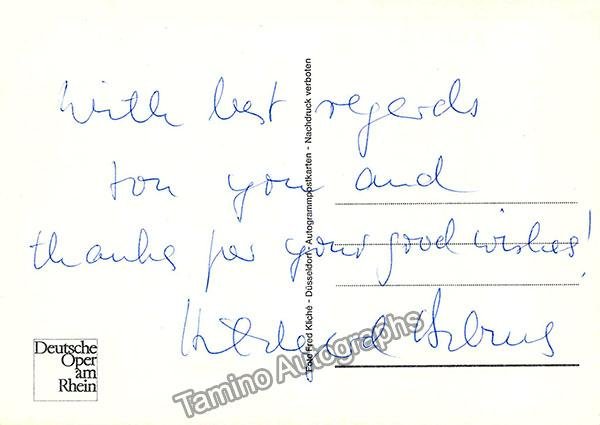 With best regards
for you and
thanks for your good wishes!
Hildegard
© Foto Fred Kliché - Düsseldorf - Autogrammpostkarten - Nachdruck verboten
Deutsche
Oper
am
Rhein
Tamino Autographs